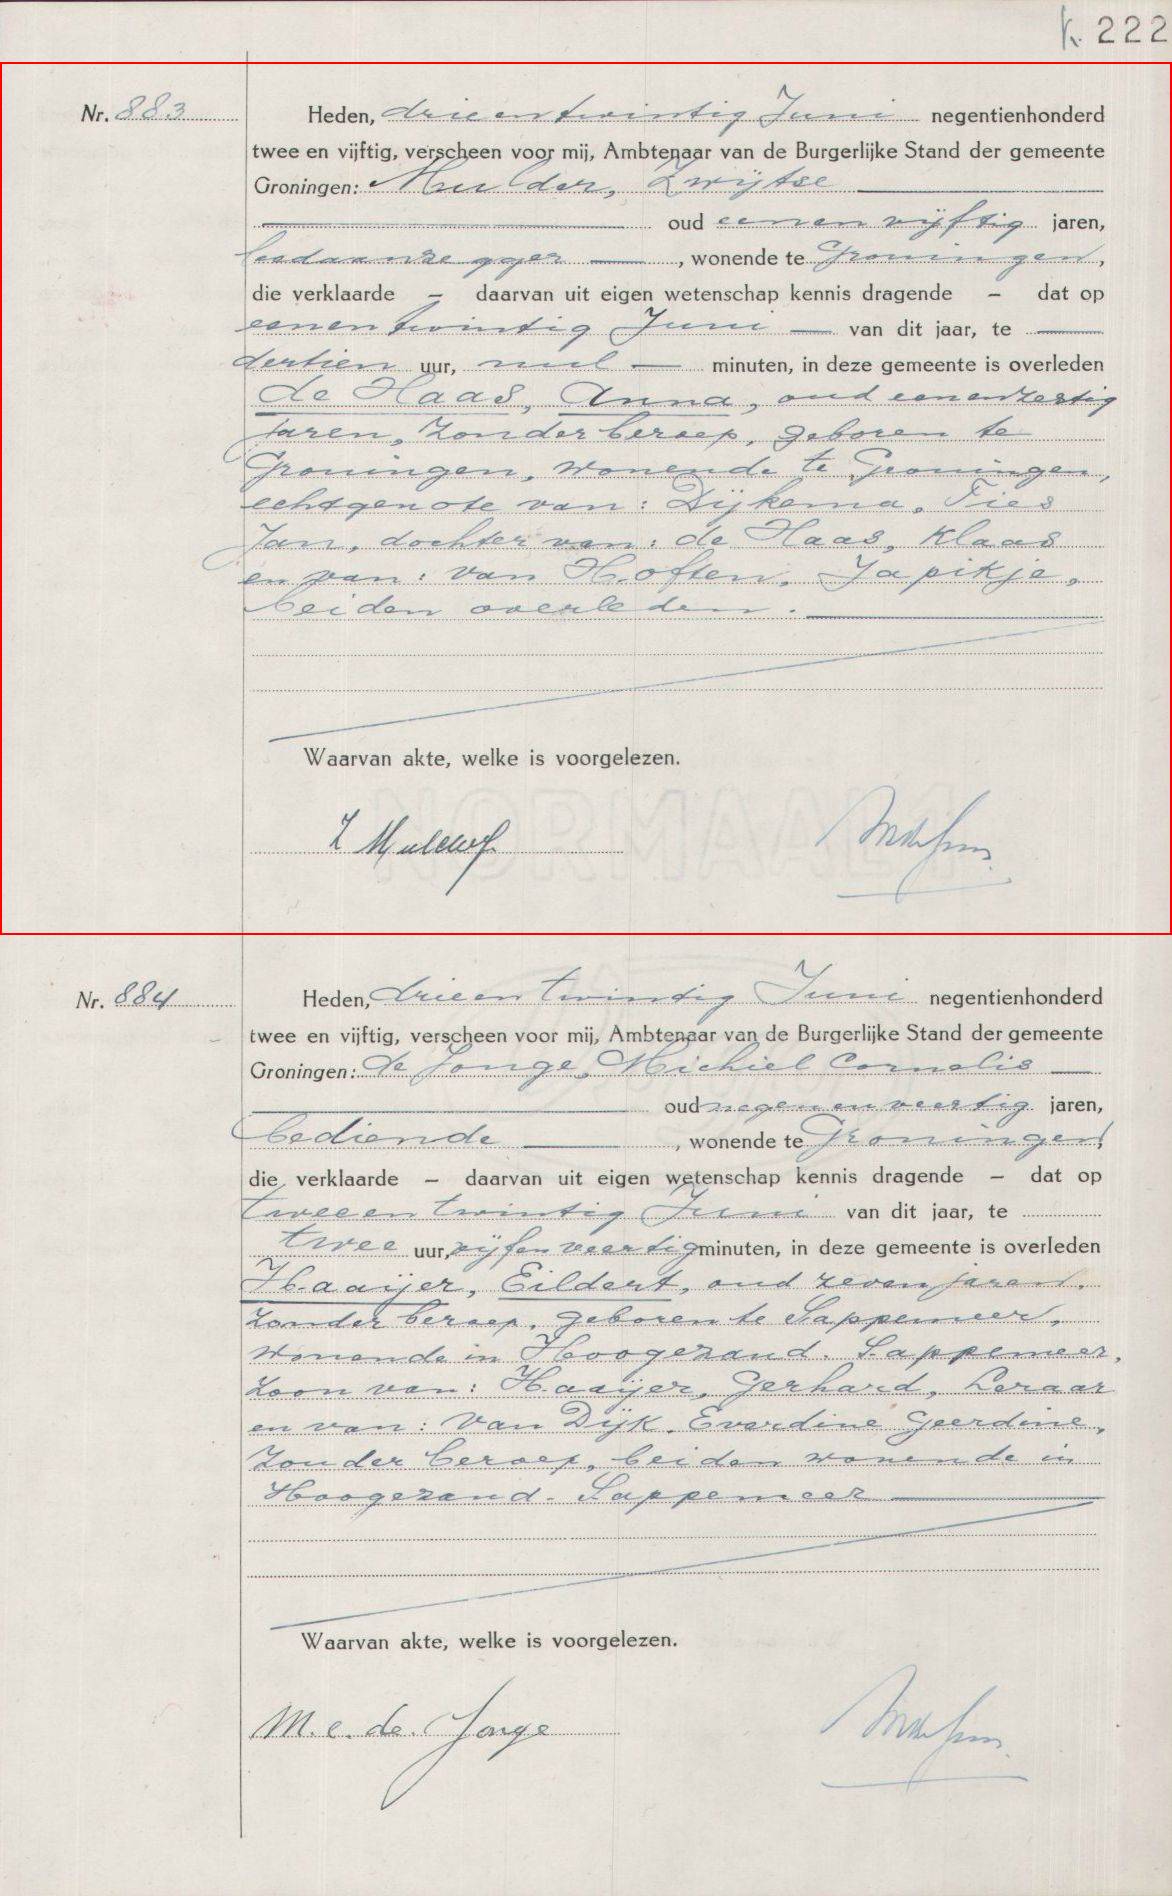 K. 222
Nr. 883
Heden, drie en twintig Juni negentienhonderd
twee en vijftig, verscheen voor mij, Ambtenaar van de Burgerlijke Stand der gemeente
Groningen: Mulder, Zwijtse
oud eenen vijftig jaren,
leedaanzegger, wonende te Groningen,
die verklaarde – daarvan uit eigen wetenschap kennis dragende – dat op
eenen twintig Juni van dit jaar, te
dertien uur, nul minuten, in deze gemeente is overleden
de Haas, Anna, oud eenenzestig
jaren, zonder beroep, geboren te
Groningen, wonende te Groningen,
echtgenote van: Dijkema, Ties
Jan, dochter van: de Haas, Klaas
en van: van Houten, Japikje,
beiden overleden.
Waarvan akte, welke is voorgelezen.
Z Mulder
NORMAAL 1
Nr. 884
Heden, drie en twintig Juni negentienhonderd
twee en vijftig, verscheen voor mij, Ambtenaar van de Burgerlijke Stand der gemeente
Groningen: de Jonge, Michiel Cornelis
oud negen en veertig jaren,
bediende, wonende te Groningen,
die verklaarde – daarvan uit eigen wetenschap kennis dragende – dat op
twee en twintig Juni van dit jaar, te
twee uur, vijf en veertig minuten, in deze gemeente is overleden
Haaijer, Eildert, oud zeven jaren,
zonder beroep, geboren te Sappemeer,
wonende in Hoogezand-Sappemeer,
zoon van: Haaijer, Gerhard, Leraar
en van: van Dijk, Everdine Geerdine,
zonder beroep, beiden wonende in
Hoogezand-Sappemeer
Waarvan akte, welke is voorgelezen.
M. C. de Jonge